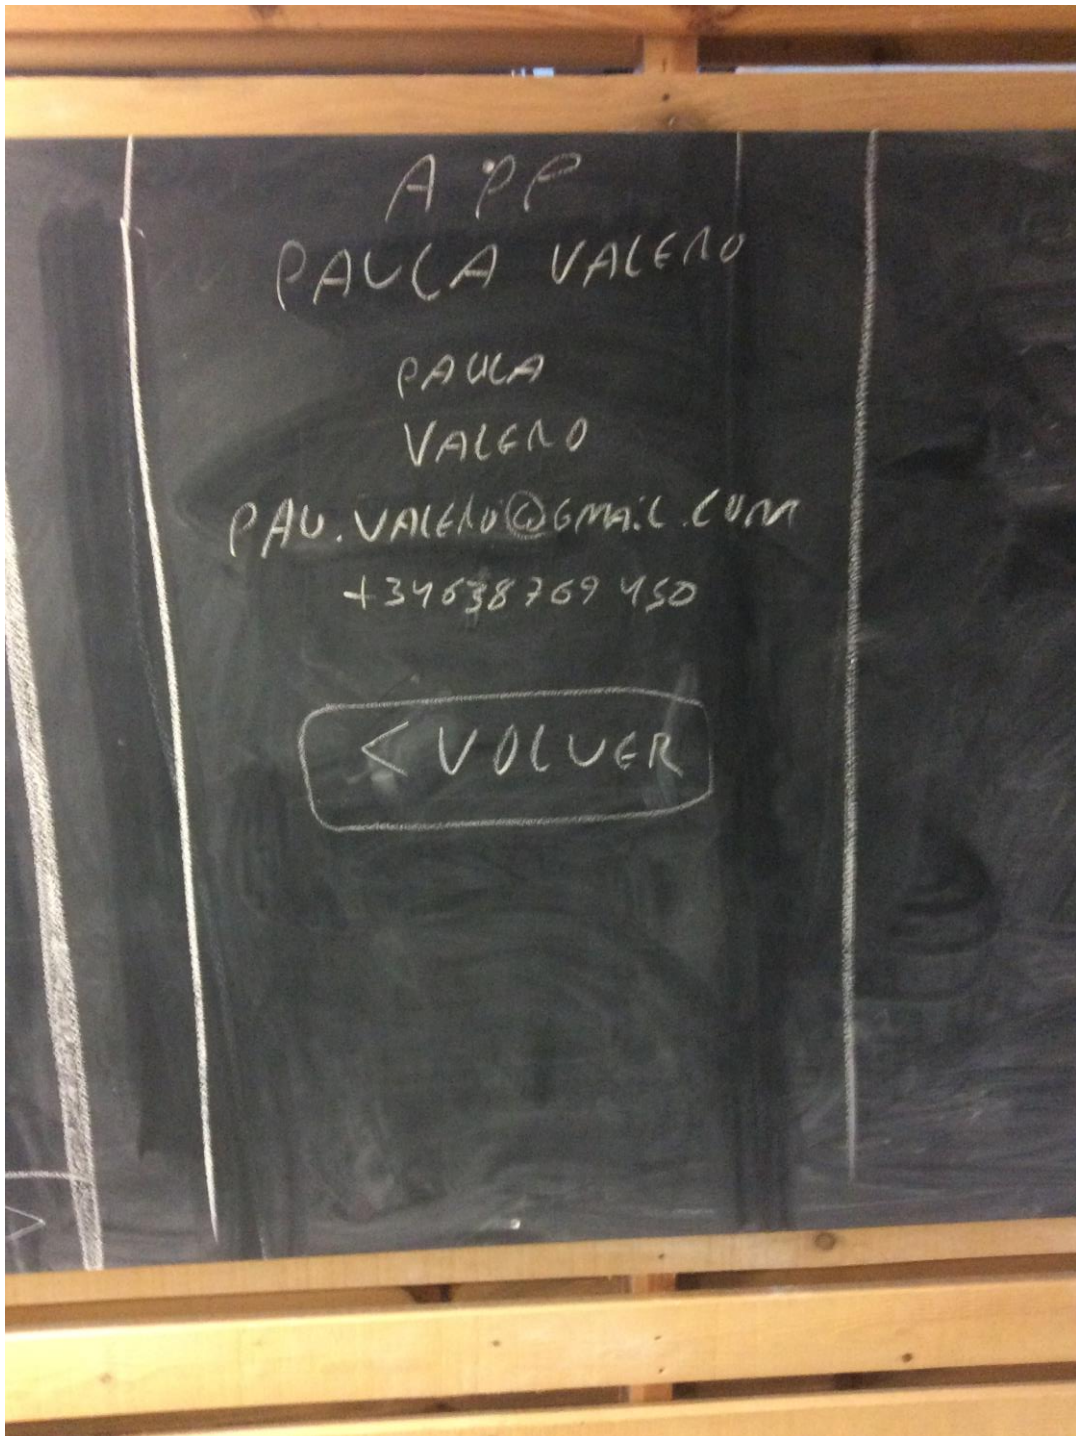 APP
PAULA VALERO
PAULA
VALERO
PAU.VALERO@GMAIL.COM
+34638769 450
< VOLVER